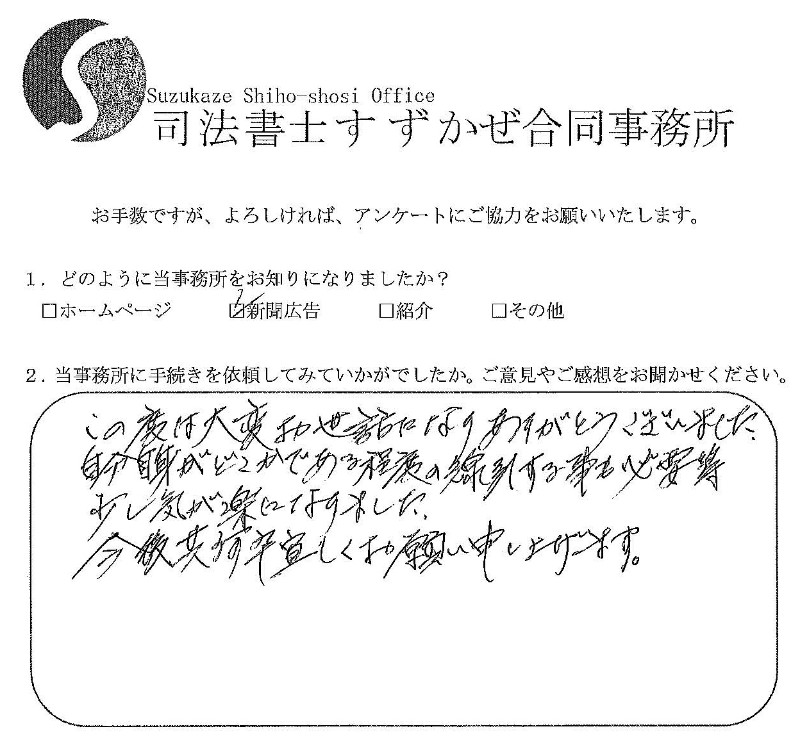 Suzukaze Shiho-shosi Office
司法書士すずかぜ合同事務所
お手数ですが、よろしければ、アンケートにご協力をお願いいたします。
1．どのように当事務所をお知りになりましたか？
□ホームページ ☑新聞広告 □紹介 □その他
2．当事務所に手続きを依頼してみていかがでしたか。ご意見やご感想をお聞かせください。
この度は大変お世話になりありがとうございました。
自分自身がどこかである程度の線引する事も必要等
少し気が楽になりました。
今後共何卒宜しくお願い申し上げます。